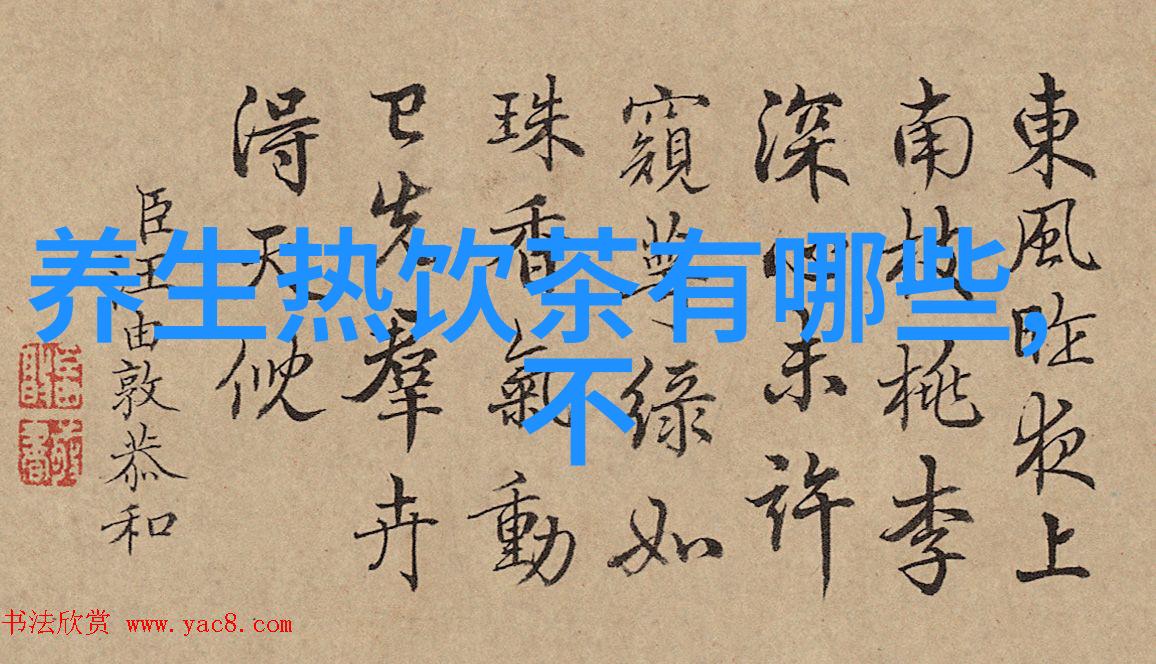 東風昨夜上
南枝桃李
深心未許
窺綠如
珠香氣動
已先羣卉
得天倪
臣汪由敦恭和
养生热饮茶有哪些,
不
书法欣赏 www.yac8.com